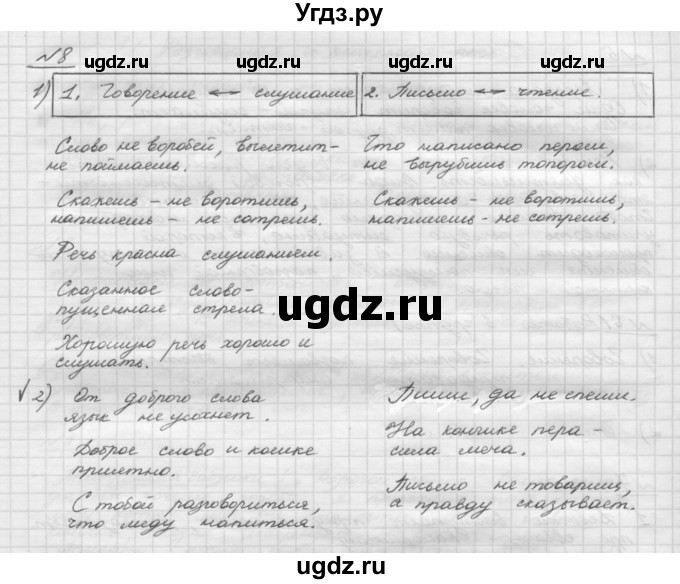 Угдз.ру
№8
ugdz.ru ugdz.ru ugdz.ru
1) 1. Говорение ⟷ слушание 2. Письмо ⟷ чтение.
Слово не воробей, вылетит-
не поймаешь.
Что написано пером,
не вырубишь топором.
ugdz.ru ugdz.ru
Скажешь - не воротишь,
напишешь - не сотрешь.
Скажешь - не воротишь,
напишешь - не сотрешь.
Речь красна слушанием.
Сказанное слово-
пущенная стрела.
ugdz.ru
Хорошую речь хорошо и
слушать.
√ 2) От доброго слова
язык не усохнет.
Доброе слово и кошке
приятно.
С тобой разговориться,
что меду напиться.
Пиши, да не спеши.
На кончике пера -
сила меча.
Письмо не товарищ,
а правду сказывает.
ugdz.ru ugdz.ru
ugdz.ru ugdz.ru ugdz.ru